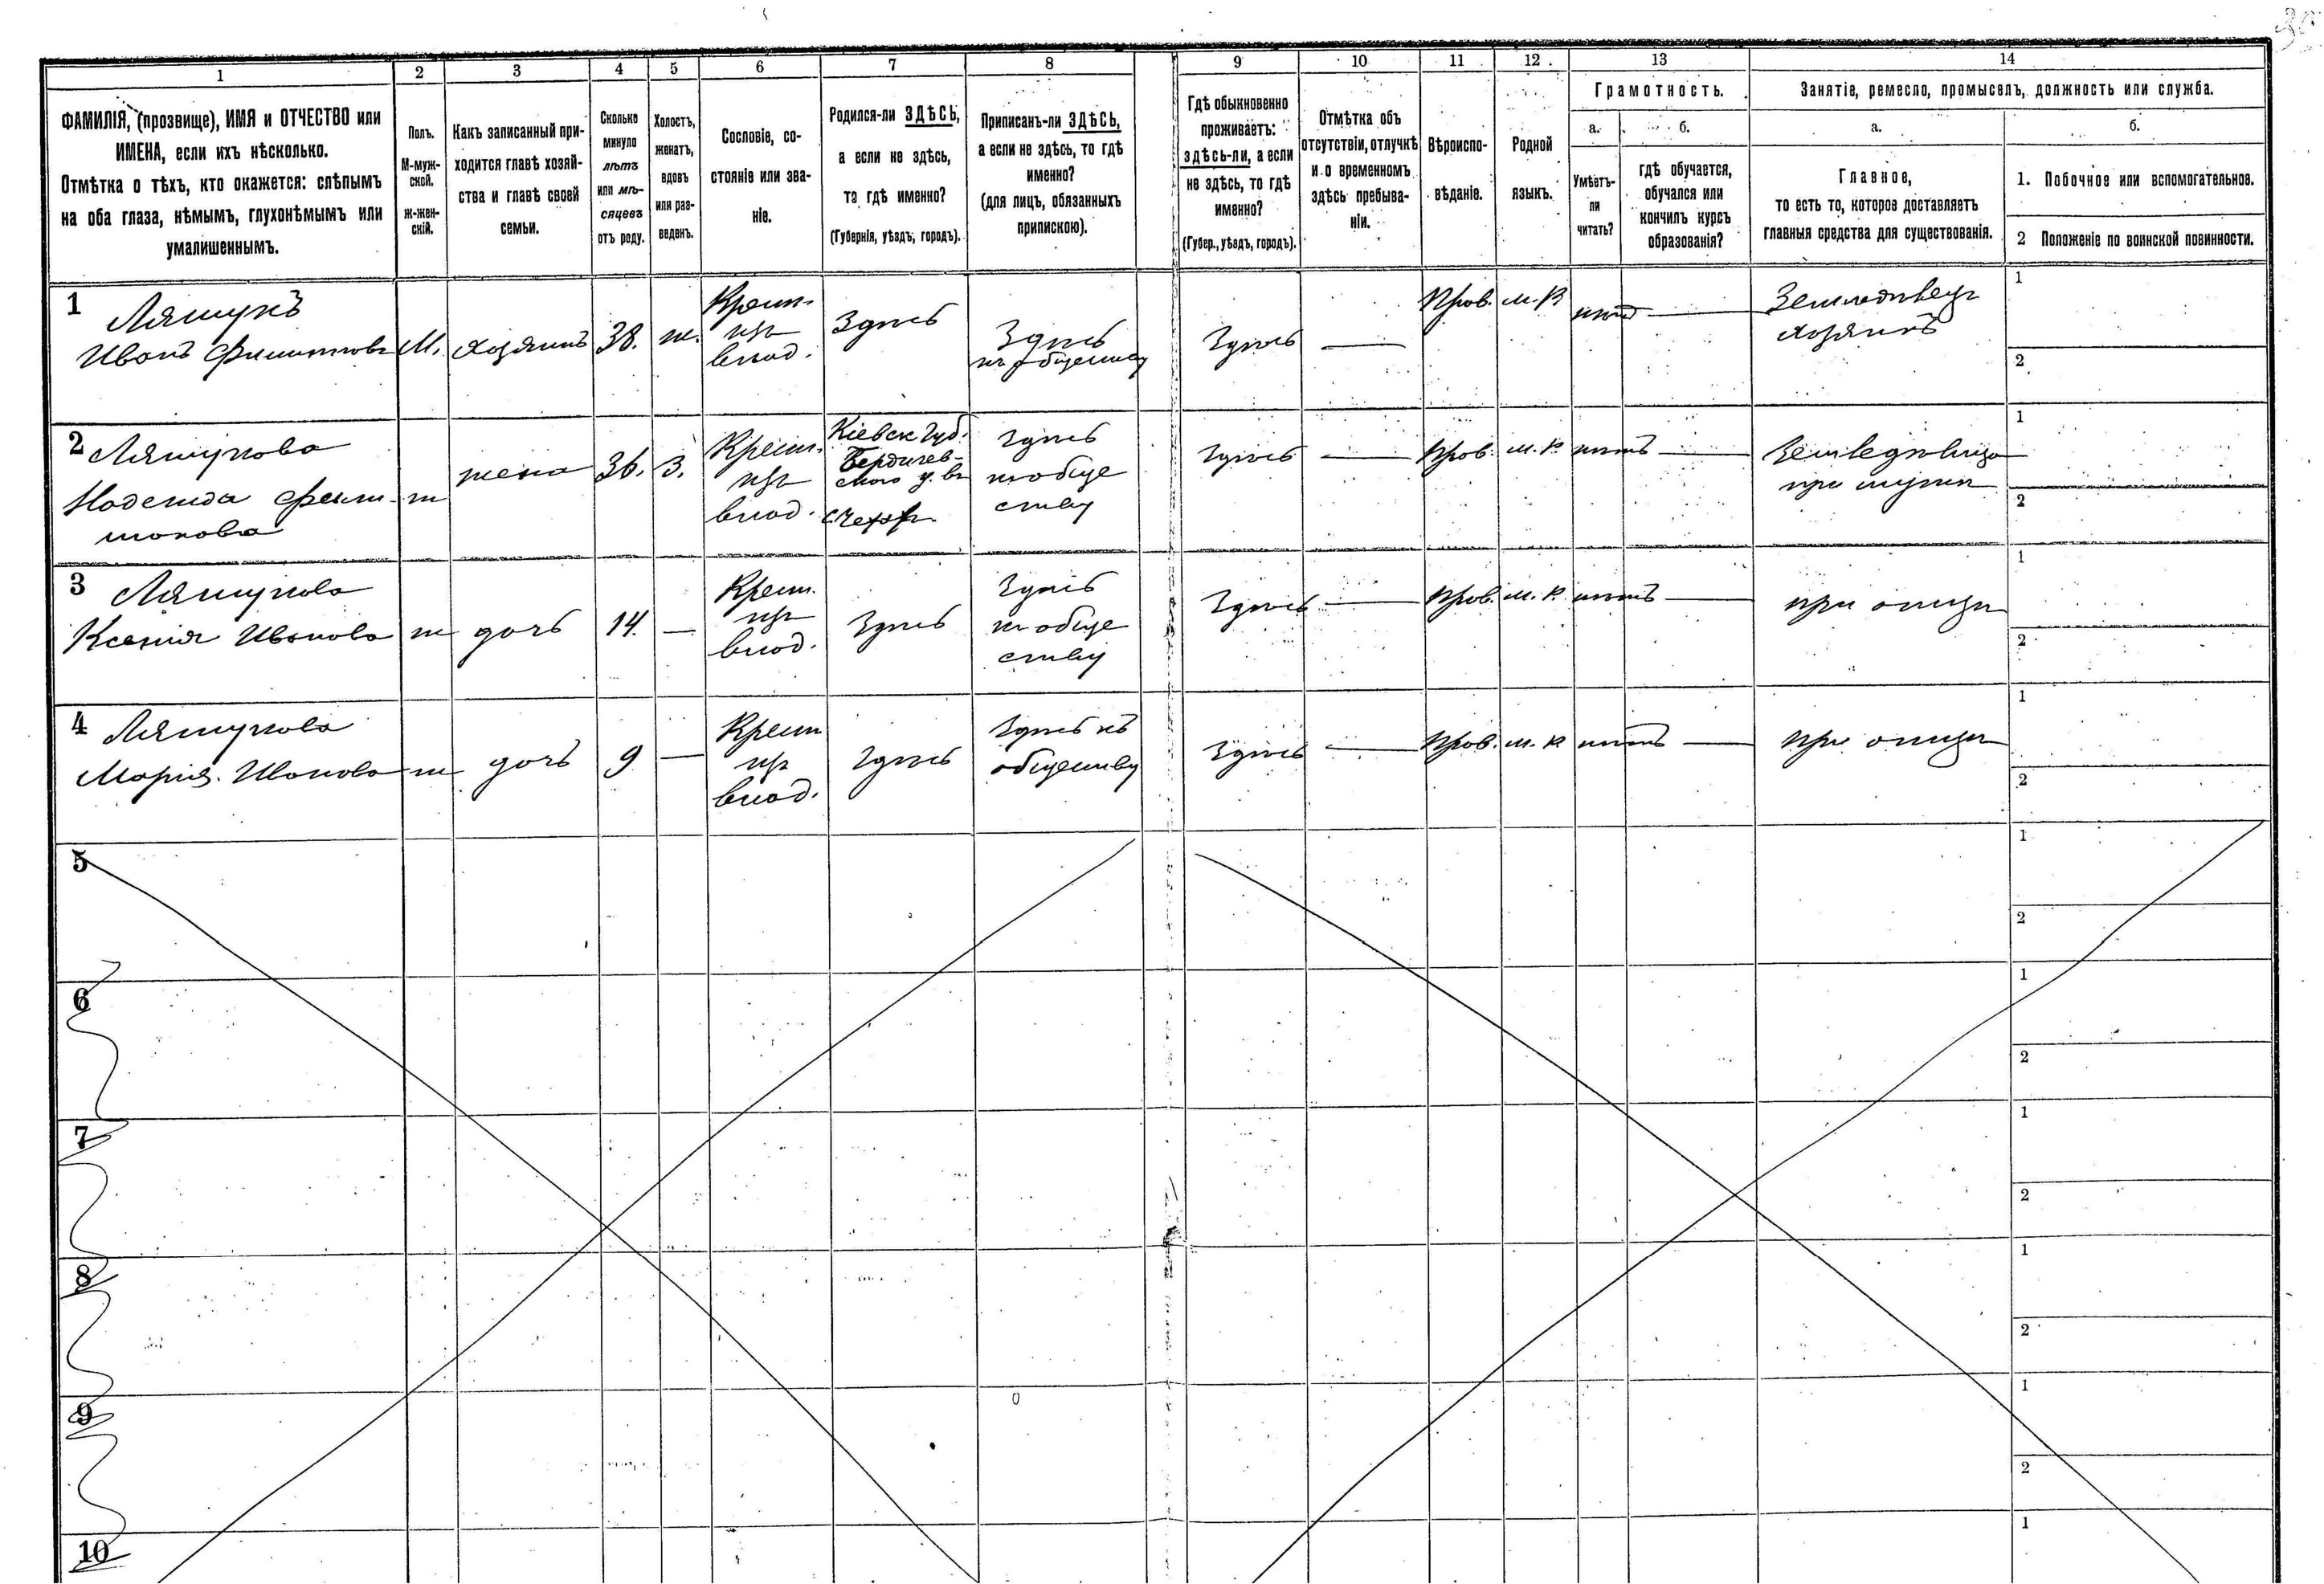 1 2 3 4 5 6 7 8 9 10 11 12 13 14
ФАМИЛІЯ, (прозвище), ИМЯ и ОТЧЕСТВО или
ИМЕНА, если ихъ нѣсколько.
Отмѣтка о тѣхъ, кто окажется: слѣпымъ
на оба глаза, нѣмымъ, глухонѣмымъ или
умалишеннымъ.
Полъ.
М-муж-
ской.
ж-жен-
скій.
Какъ записанный при-
ходится главѣ хозяй-
ства и главѣ своей
семьи.
Сколько
минуло
лѣтъ
или мѣ-
сяцевъ
отъ роду.
Холостъ,
женатъ,
вдовъ
или раз-
веденъ.
Сословіе, со-
стояніе или зва-
ніе.
Родился-ли ЗДѢСЬ,
а если не здѣсь,
то гдѣ именно?
(Губернія, уѣздъ, городъ).
Приписанъ-ли ЗДѢСЬ,
а если не здѣсь, то гдѣ
именно?
(для лицъ, обязанныхъ
припискою).
Гдѣ обыкновенно
проживаетъ:
здѣсь-ли, а если
не здѣсь, то гдѣ
именно?
(Губер., уѣздъ, городъ).
Отмѣтка объ
отсутствіи, отлучкѣ
и о временномъ
здѣсь пребыва-
ніи.
Вѣроиспо-
вѣданіе.
Родной
языкъ.
Грамотность.
а. б.
Умѣетъ-
ли
читать?
гдѣ обучается,
обучался или
кончилъ курсъ
образованія?
Занятіе, ремесло, промыселъ, должность или служба.
а. б.
Главное,
то есть то, которое доставляетъ
главныя средства для существованія.
1. Побочное или вспомогательное.
2 Положеніе по воинской повинности.
1
Ляшукъ
Иванъ
М.
хозяинъ
38.
ж.
Крест.
изъ
влад.
Здѣсь
Здѣсь
къ обществу
Здѣсь —
Прав.
м. р
нѣт —
Земледѣлец
хозяинъ
1
2
2
Ляшукова
Надежда
ж
жена
36.
З.
Крест.
изъ
влад.
Кіевск губ.
Бердичев-
ского у. въ
здѣсь
къ обще
ству
Здѣсь —
Прав.
м. р.
нѣтъ —
при мужѣ
1
2
3
Ляшукова
Ксенія Иванова
ж
дочь
14.
—
Крест.
изъ
влад.
Здѣсь
Здѣсь
къ обще
ству
Здѣсь —
Прав.
м. р.
нѣтъ —
при отцѣ
1
2
4
Ляшукова
Марія Иванова
ж
дочь
9
—
Крест
изъ
влад.
Здѣсь
Здѣсь къ
обществу
Здѣсь —
Прав.
м. р
нѣтъ —
при отцѣ
1
2
5
1
2
6
1
2
7
1
2
8
1
2
9
1
2
10
1